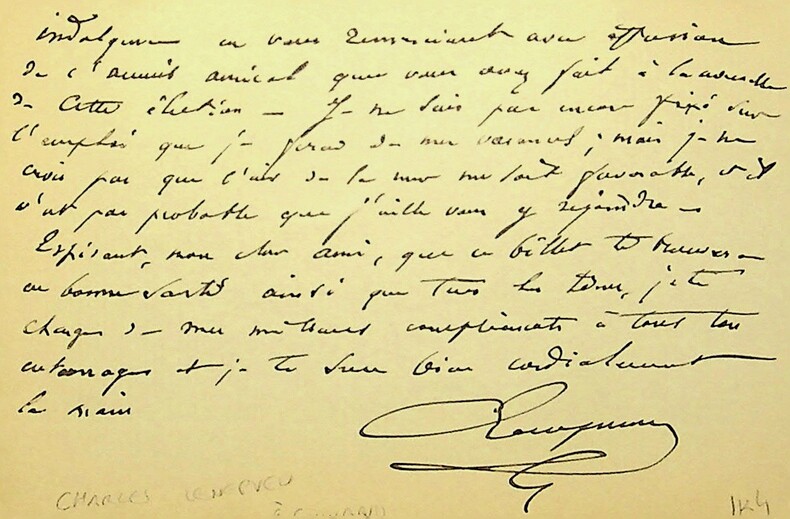 indulgence en vous remerciant avec effusion
de l'accueil amical que vous avez fait à la nouvelle
de cette élection — Je ne suis pas encore fixé sur
l'emploi que je ferai de mes vacances ; mais je ne
crois pas que l'air de la mer me soit favorable, et il
n'est pas probable que j'aille vous y rejoindre —
Espérant, mon cher ami, que ce billet te trouvera
en bonne santé ainsi que tous les tiens, je te
charge de mes meilleurs compliments à tout ton
entourage et je te serre bien cordialement
la main
CHARLES LENEPVEU
1K4